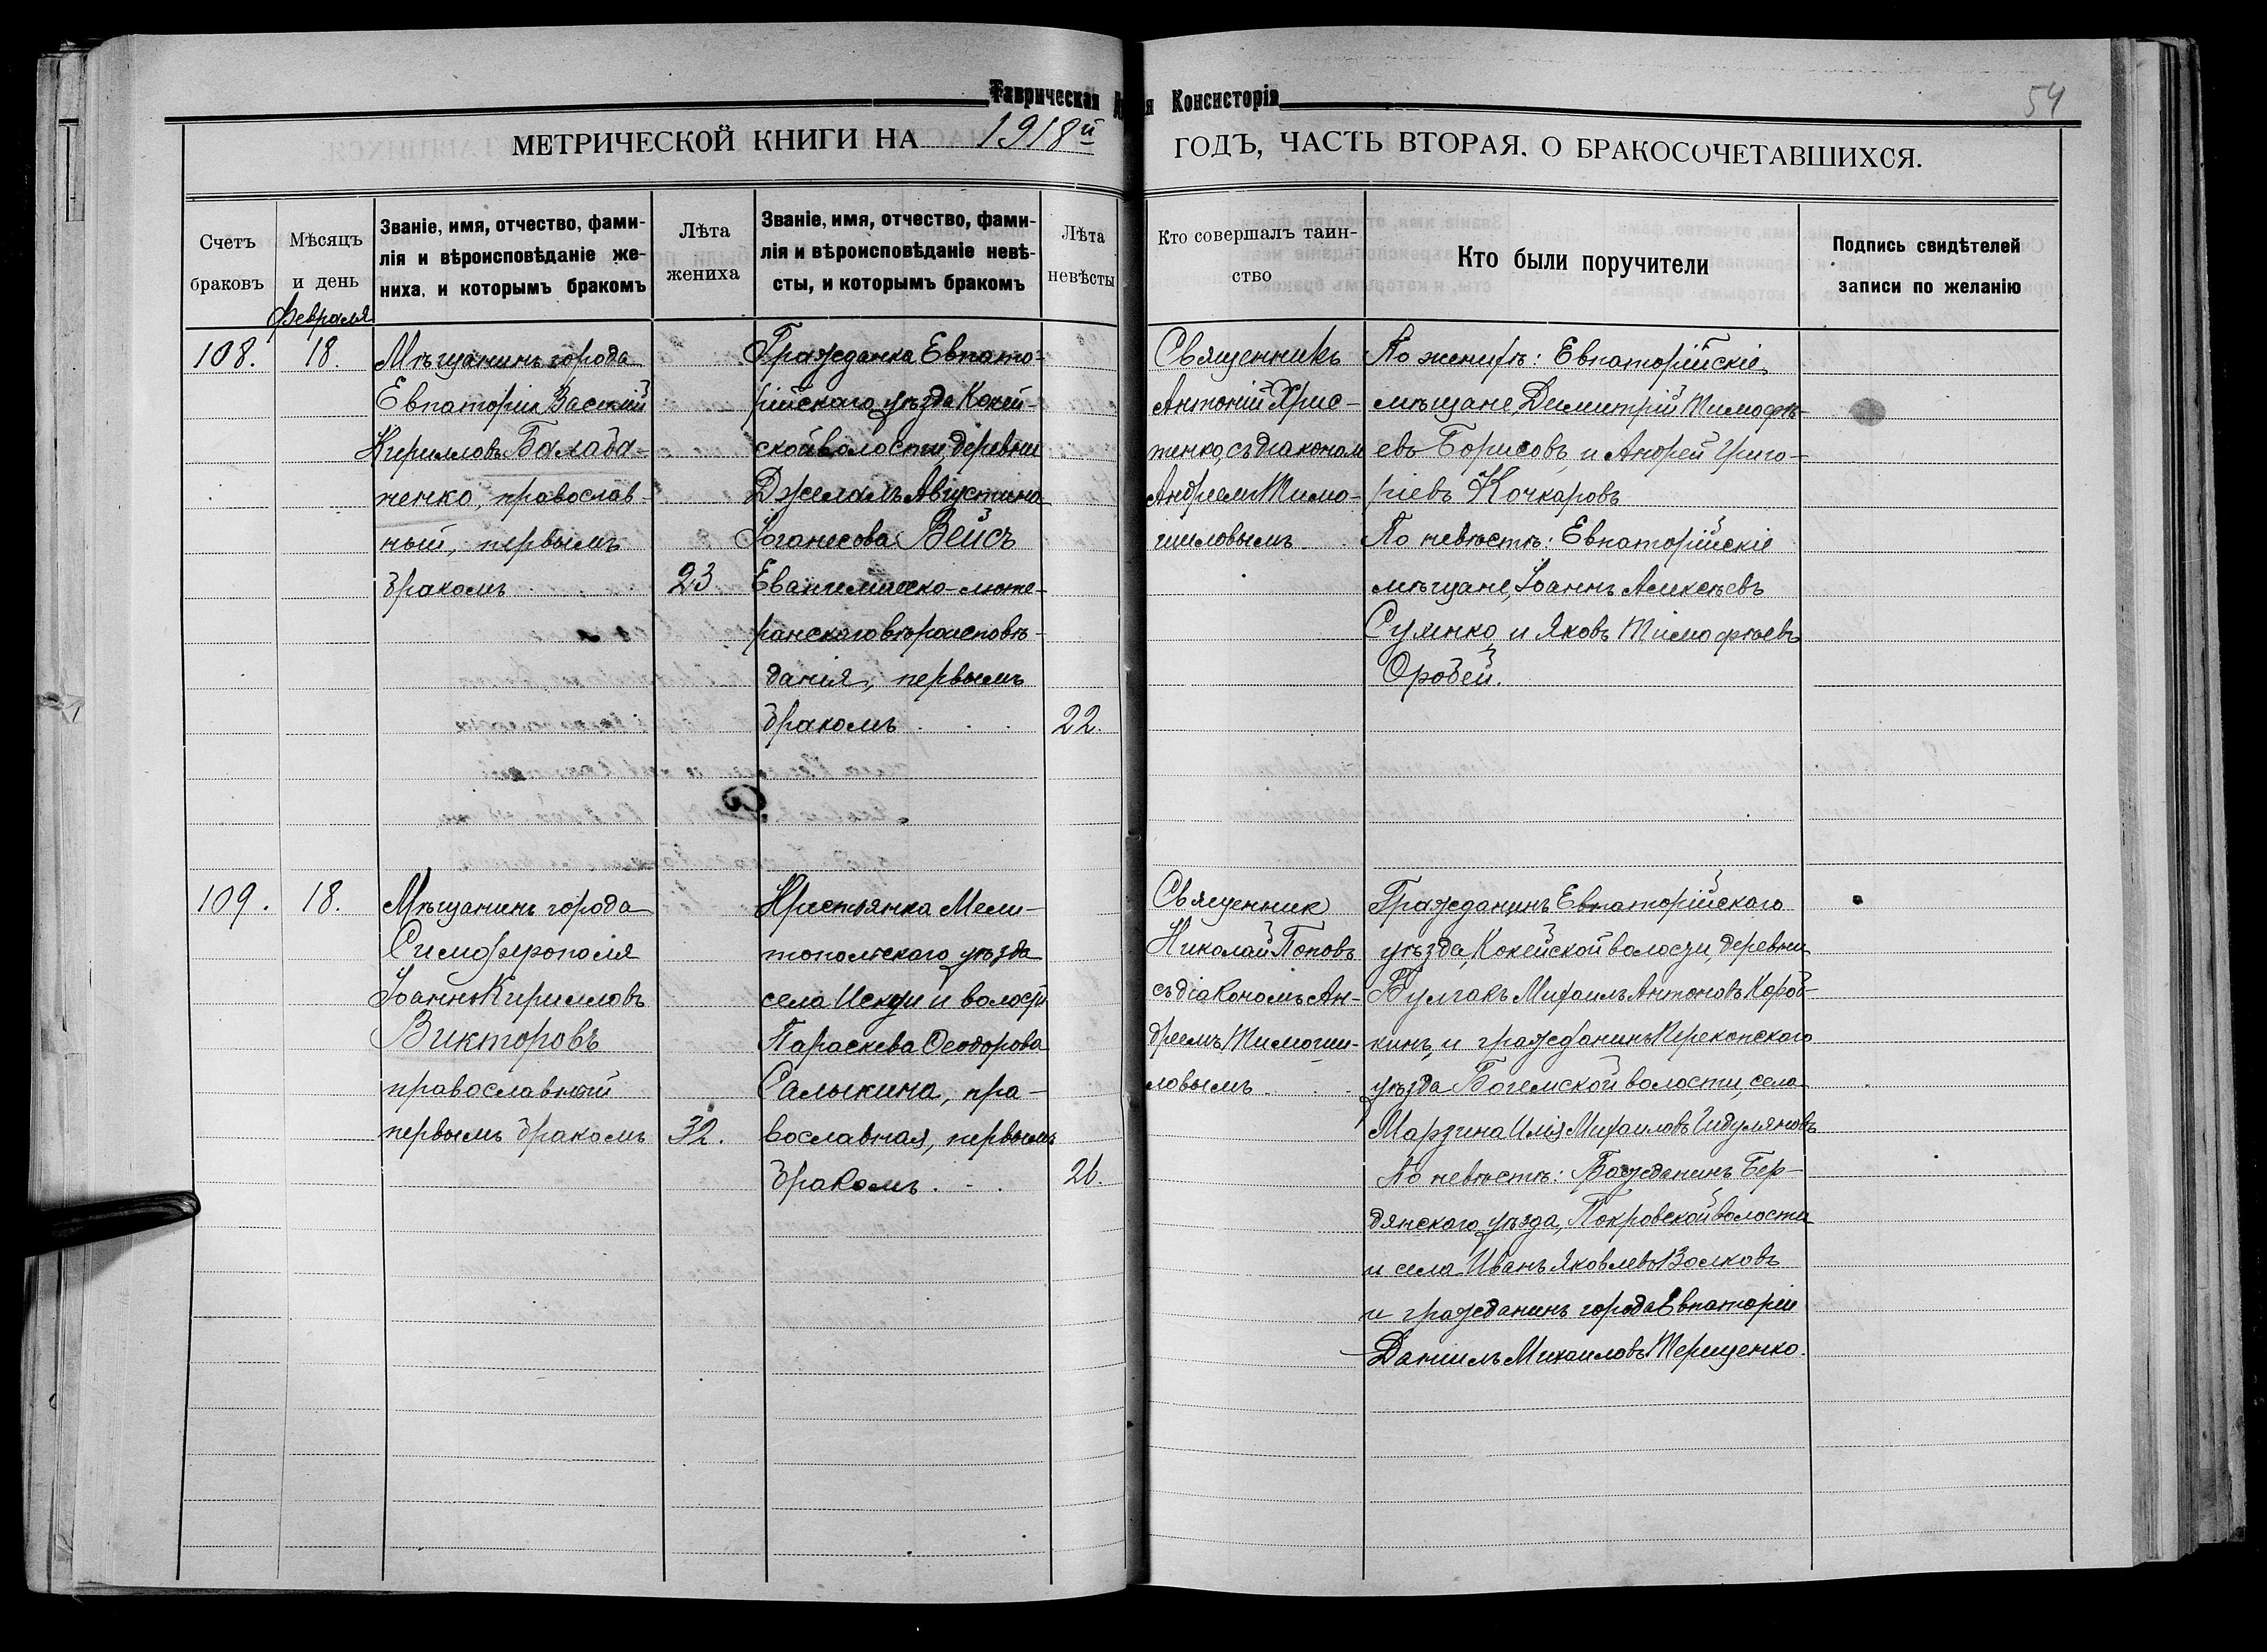 Таврическая
я Консисторія
54
МЕТРИЧЕСКОЙ КНИГИ НА 1918й
ГОДЪ, ЧАСТЬ ВТОРАЯ, О БРАКОСОЧЕТАВШИХСЯ.
Счетъ
браковъ
Мѣсяцъ
и день
Февраля
Званіе, имя, отчество, фами-
лія и вѣроисповѣданіе же-
ниха, и которымъ бракомъ
Лѣта
жениха
Званіе, имя, отчество, фами-
лія и вѣроисповѣданіе невѣ-
сты, и которымъ бракомъ
Лѣта
невѣсты
Кто совершалъ таин-
ство
Кто были поручители
Подпись свидѣтелей
записи по желанію
108.
18.
Мѣщанинъ города
Евпаторіи Василій
Кирилловъ Балаба-
ненко, православ-
ный, первымъ
бракомъ
23
Гражданка Евпато-
рійскаго уѣзда Кокей-
ской волости, деревни
Джелалъ Августина
Іоганесова Вейсъ
Евангелическо-люте-
ранскаго вѣроисповѣ-
данія, первымъ
бракомъ . . .
22.
Священникъ
Антоній Хрис-
тенко, съ діакономъ
Андреемъ Тимо-
шиловымъ
По женихѣ: Евпаторійскіе
мѣщане, Димитрій Тимофѣ-
евъ Борисовъ, и Андрей Григо-
ріевъ Кочкаровъ
По невѣстѣ: Евпаторійскіе
мѣщане, Іоаннъ Алексѣевъ
Сулнко и Яковъ Тимофѣевъ
Оробей.
109.
18.
Мѣщанинъ города
Симферополя
Іоаннъ Кирилловъ
Викторовъ
православный
первымъ бракомъ
32.
Кристьянка Мели-
топольскаго уѣзда
села и волости
Параскева Ѳеодорова
Салыкина, пра-
вославная, первымъ
бракомъ . . .
26.
Священник
Николай Поповъ
съ діакономъ Ан-
дреемъ Тимоши-
ловымъ . . .
Гражданинъ Евпаторійскаго
уѣзда, Кокейской волости, деревни
Булгакъ Михаилъ Антоновъ Короб-
кинъ, и гражданинъ Перекопскаго
уѣзда Богемской волости, села
Марзина Илія Михаиловъ Чидуляновъ
По невѣстѣ: Гражданинъ Бер-
дянскаго уѣзда, Покровской волости
и села Иванъ Яковлевъ Волковъ
и гражданинъ города Евпаторіи
Даніилъ Михаиловъ Терещенко.